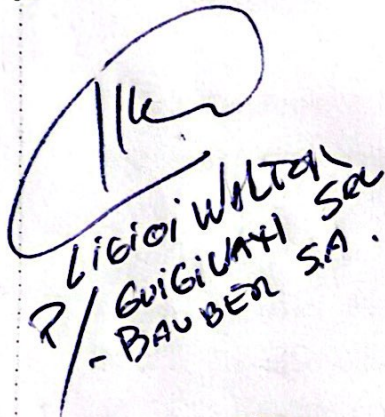 LIGIOI WALTER
P/ GUIGIUAHI SRL
- BAUBER S.A.